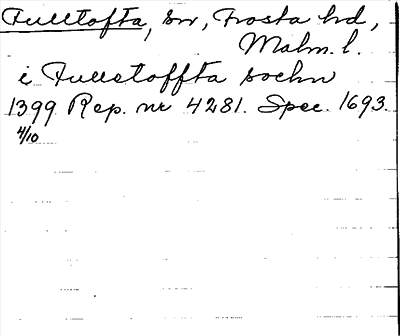 Fulltofta, sn, Frosta hd,
Malm. l.
i Fullstoffta sochn
1399 Rep. nr 4281. Spec. 1693.
4/10